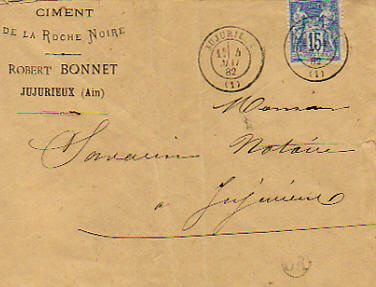 CIMENT
DE LA ROCHE NOIRE
ROBERT BONNET
JUJURIEUX (Ain)
JUJURI
82
(1)
15
82
(1)
Monsieur
Savarin Notaire
à Jujurieux